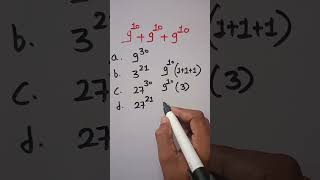 9¹⁰ + 9¹⁰ + 9¹⁰
a. 9³⁰
b. 3²¹ 9¹⁰(1+1+1)
c. 27³⁰ 9¹⁰(3)
d. 27²¹
b.
c.
d.